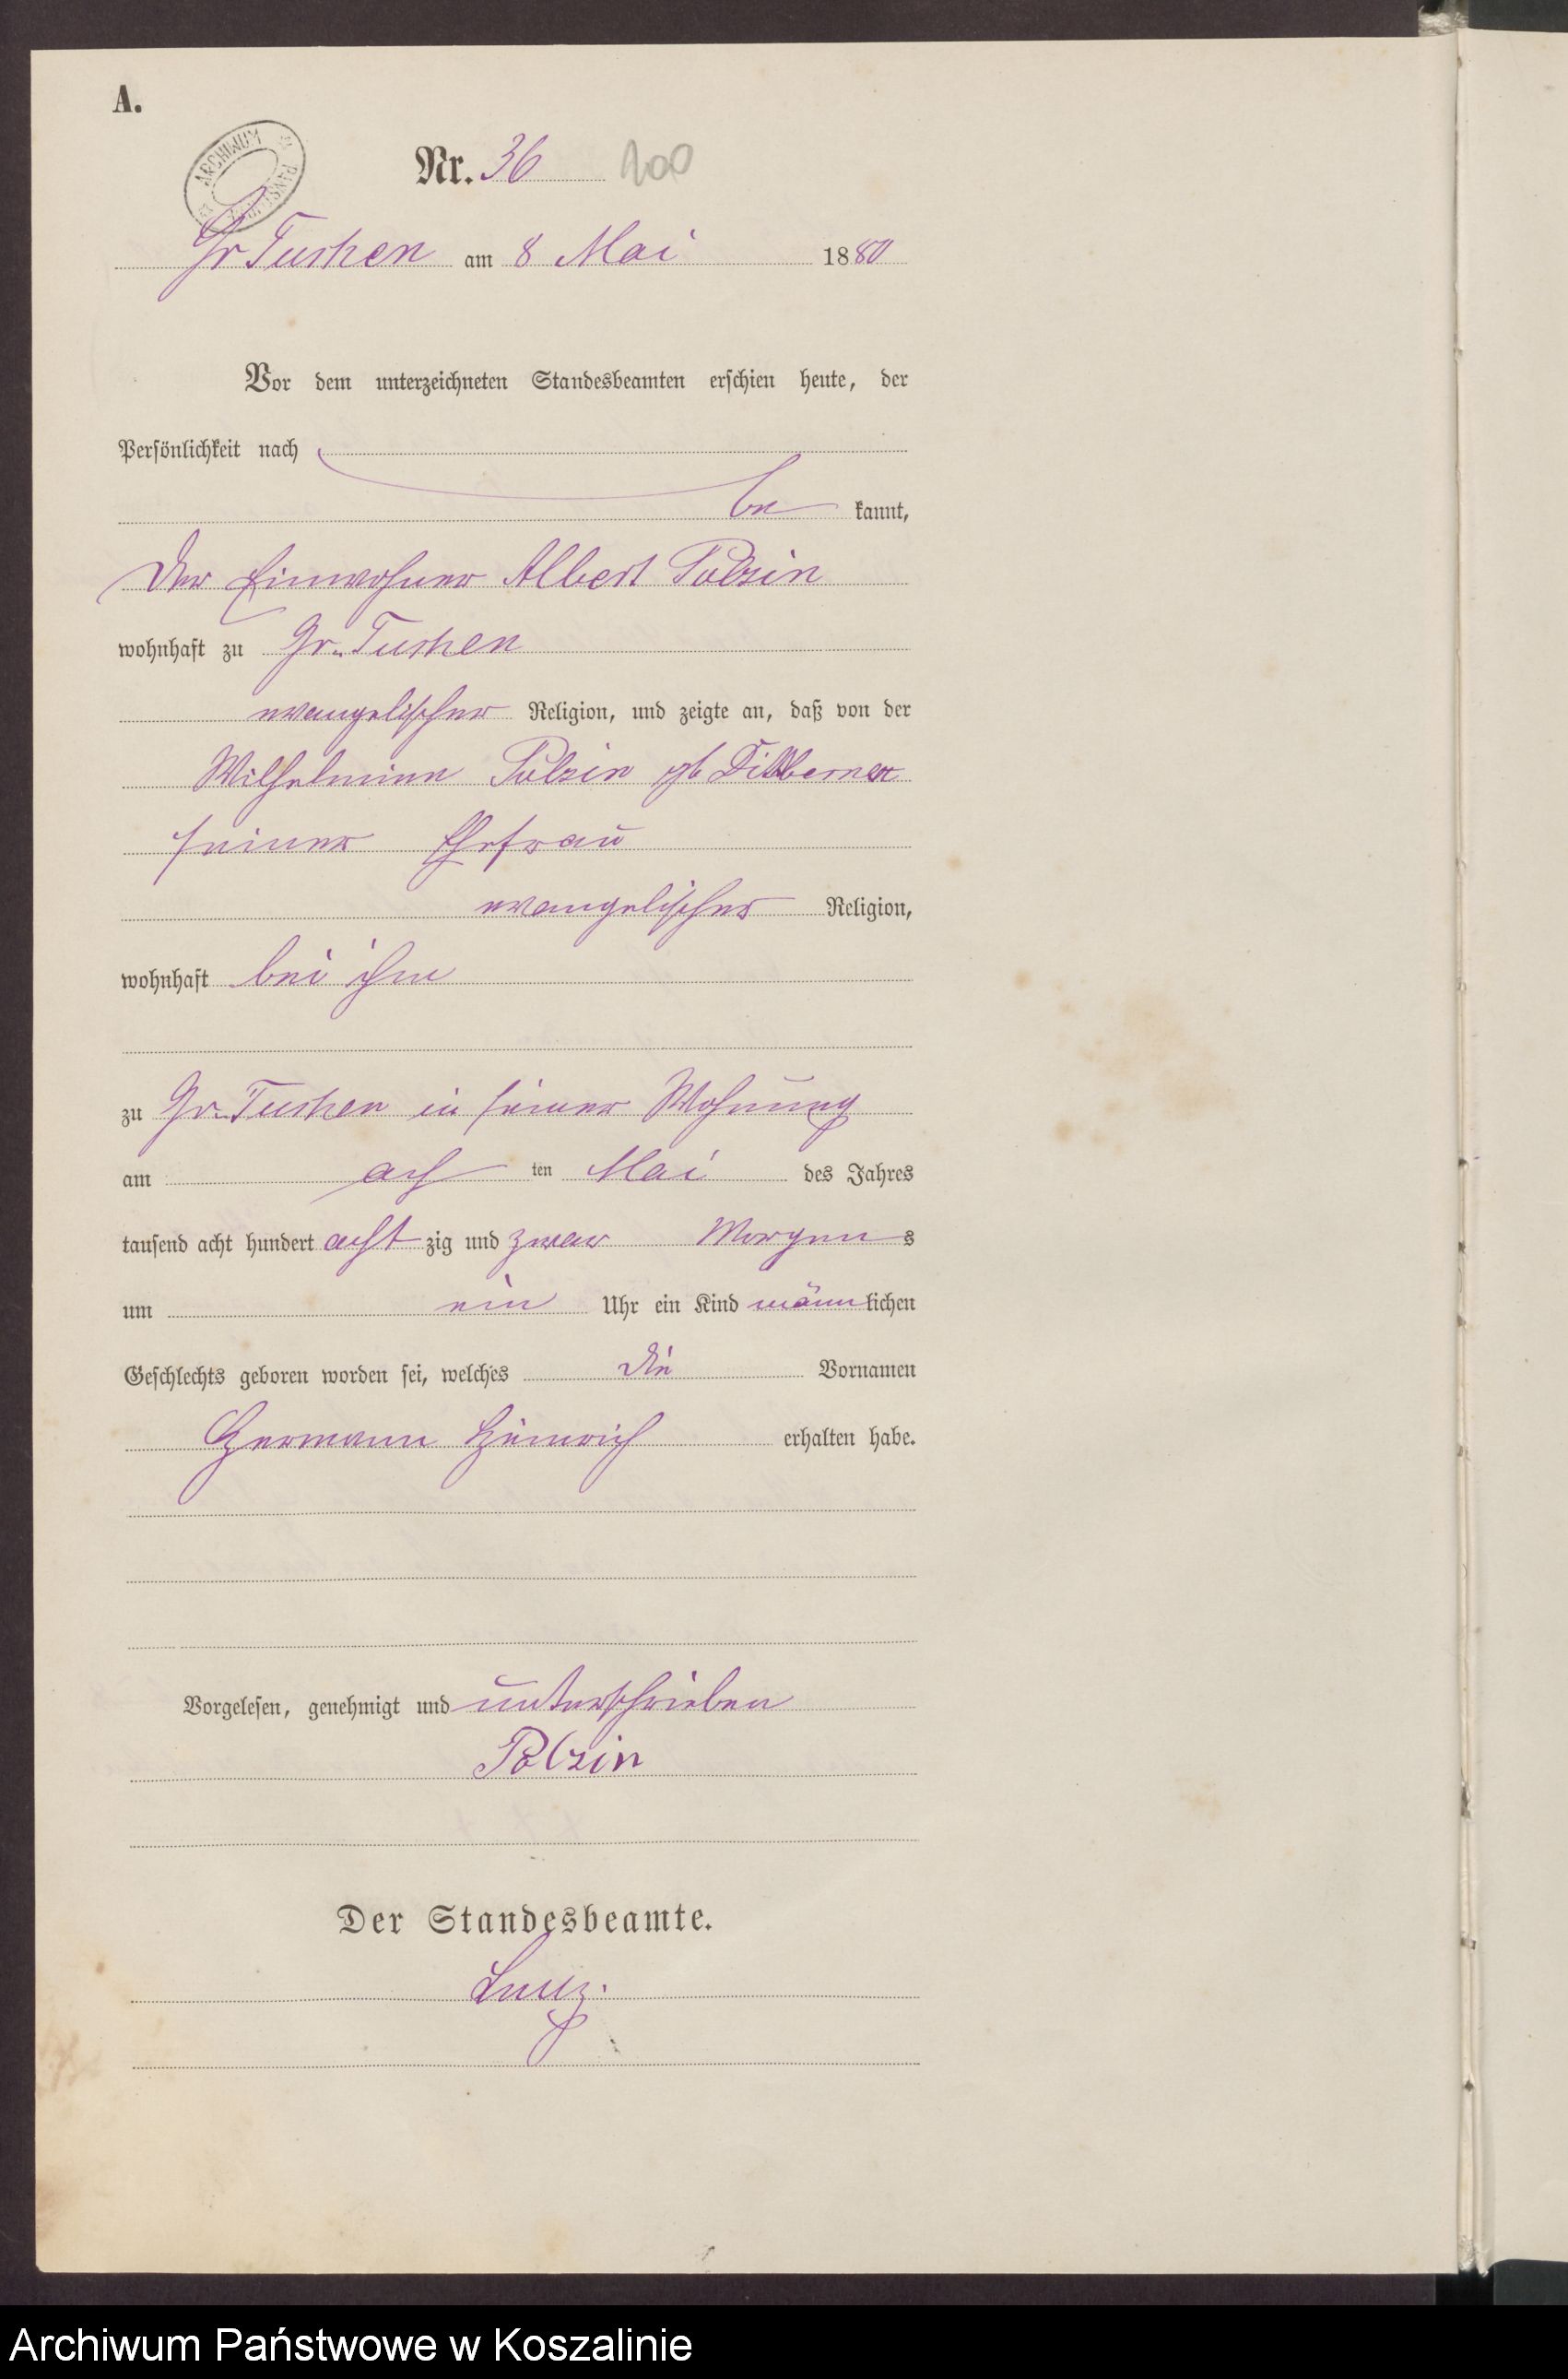 A.
ARCHIWUM PAŃSTWOWE
Nr. 36 200
Gr Tuchen am 8 Mai 1880
Vor dem unterzeichneten Standesbeamten erschien heute, der
Persönlichkeit nach
be kannt,
Der Einwohner Albert Polzin
wohnhaft zu Gr. Tuchen
evangelischer Religion, und zeigte an, daß von der
Wilhelmine Polzin gb
seiner Ehefrau
evangelischer Religion,
wohnhaft bei ihm
zu Gr. Tuchen in seiner Wohnung
am ach ten Mai des Jahres
tausend acht hundert acht zig und zwar Morgen s
um ein Uhr ein Kind männ lichen
Geschlechts geboren worden sei, welches die Vornamen
Hermann Heinrich erhalten habe.
Vorgelesen, genehmigt und unterschrieben
Polzin
Der Standesbeamte.
Archiwum Państwowe w Koszalinie